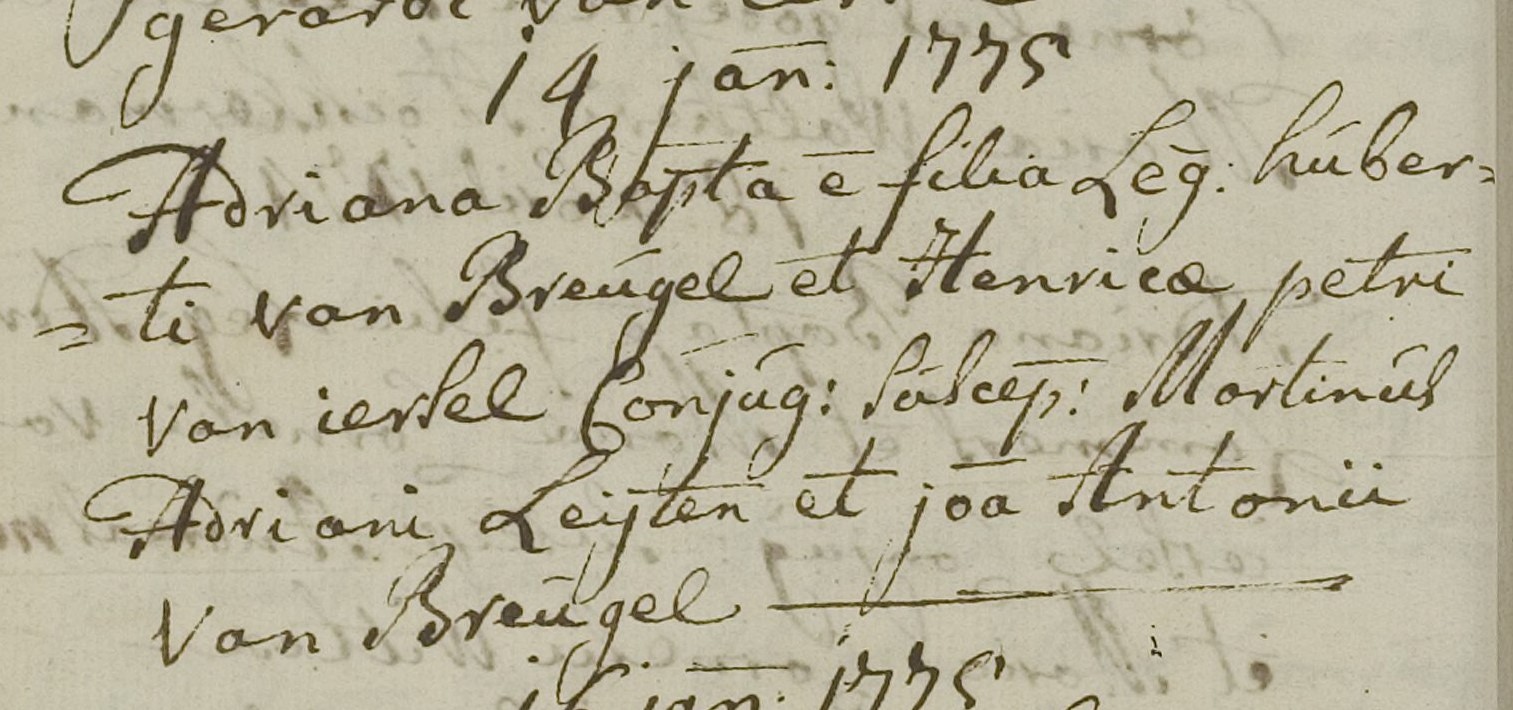 gerardi van
14 jan: 1775
Adriana Bapta ē filia Leg: húber=
=ti van Breúgel et Henricæ petri
van iersel Conjúg: súscep: Martinús
Adriani Leijten et joā Antonii
van Breúgel
jan: 1775